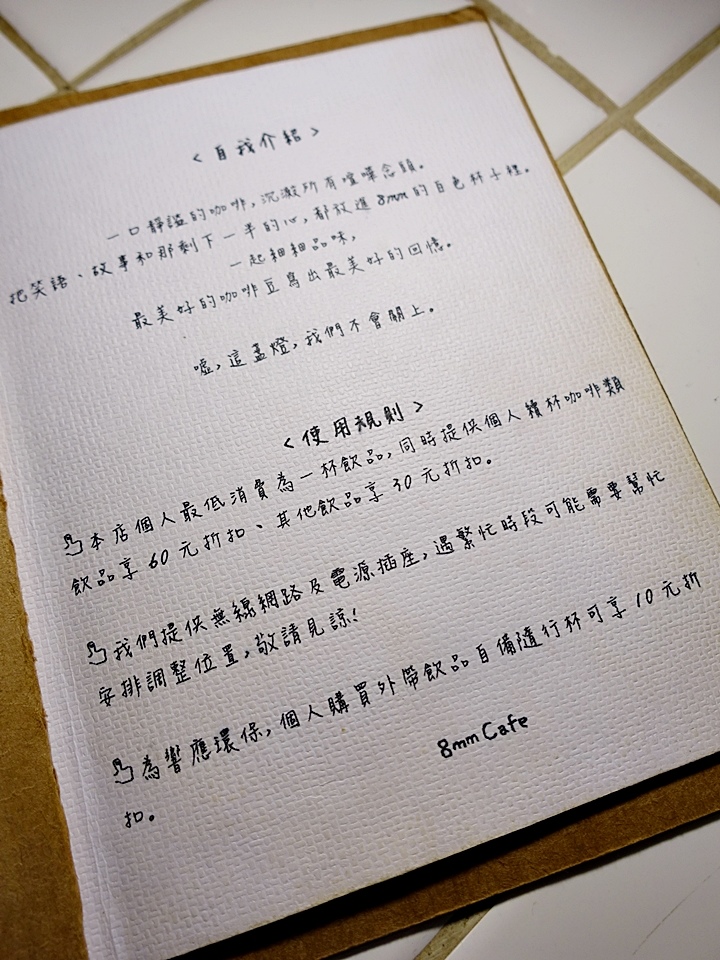 <自我介紹>
一口靜謐的咖啡,沉澱所有喧嘩念頭。
把笑語、故事和那剩下一半的心,都放進8mm的白色杯子裡。
一起細細品味,
最美好的咖啡豆寫出最美好的回憶。
噓,這盞燈,我們不會關上。
<使用規則>
本店個人最低消費為一杯飲品,同時提供個人續杯咖啡類
飲品享60元折扣、其他飲品享30元折扣。
我們提供無線網路及電源插座,遇繁忙時段可能需要幫忙
安排調整位置,敬請見諒!
為響應環保,個人購買外帶飲品自備隨行杯可享10元折
扣。
8mm Cafe